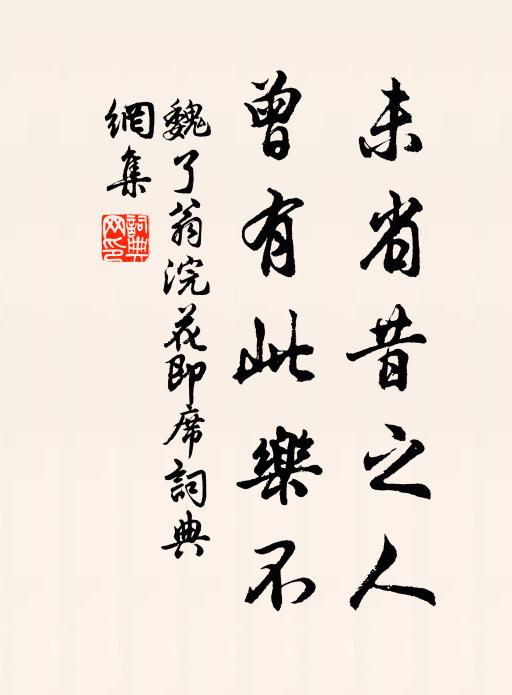 未省昔之人
曾有此樂不
魏了翁浣花即席詞典
網集
詞典
網印